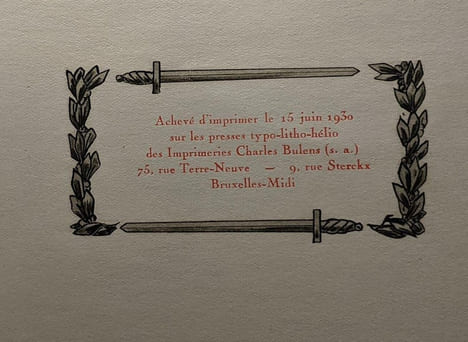 Achevé d'imprimer le 15 juin 1930
sur les presses typo-litho-hélio
des Imprimeries Charles Bulens (s. a.)
75, rue Terre-Neuve — 9, rue Sterckx
Bruxelles-Midi